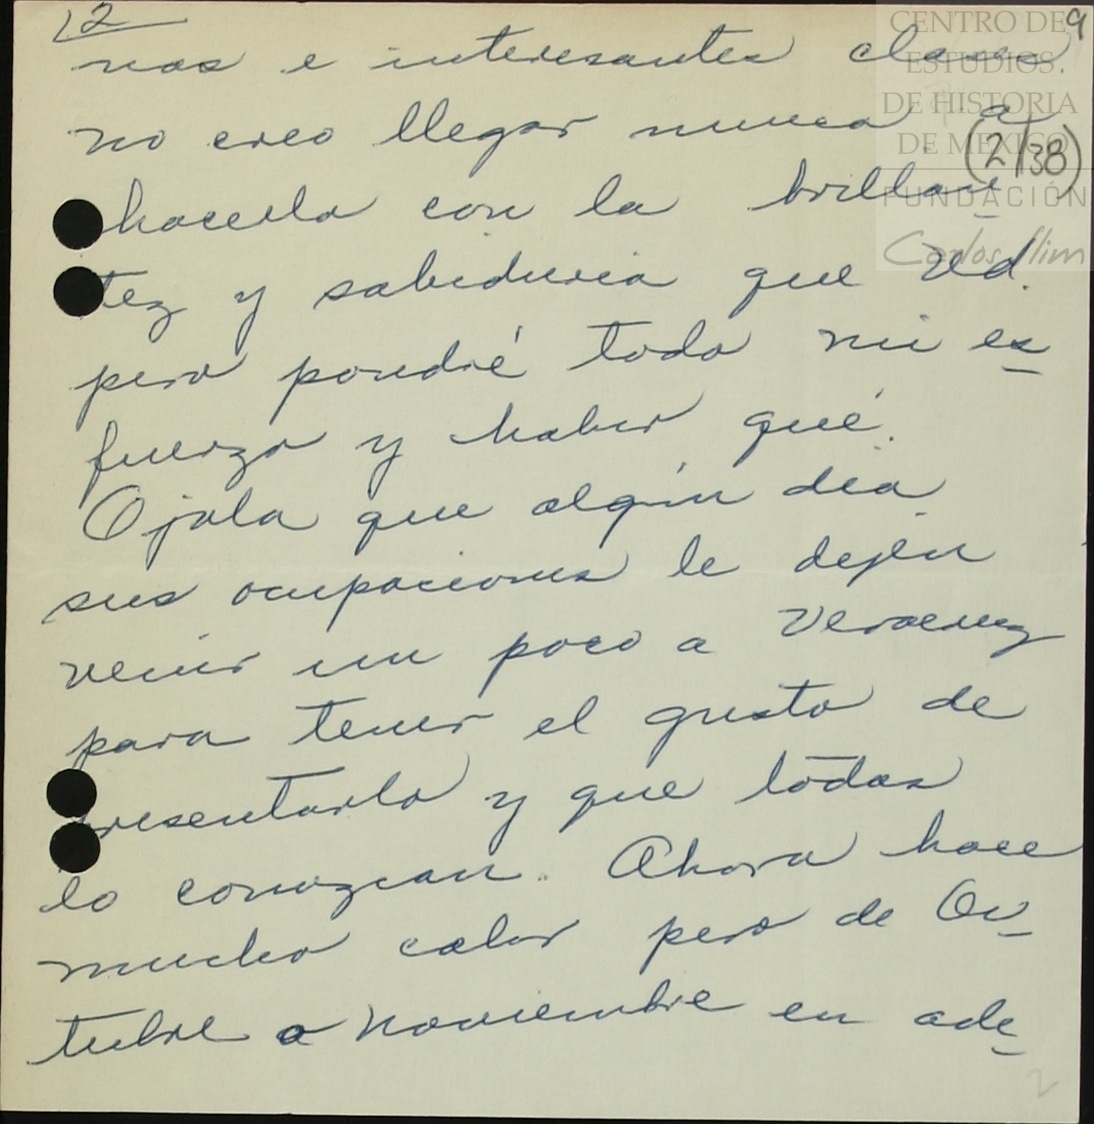 2
9
CENTRO DE
ESTUDIOS
DE HISTORIA
DE MEXICO
FUNDACIÓN
Carlos Slim
(2/38)
nas e interesantes clases
no creo llegar nunca a
hacerlo con la brillan
tez y sabiduria que Ud.
pero pondré todo mi es
fuerzo y haber qué.
Ojala que algún dia
sus ocupaciones le dejen
venir un poco a Veracruz
para tener el gusto de
presentarlo y que todas
lo conozcan. Ahora hace
mucho calor pero de Oc
tubre a Noviembre en ade
2